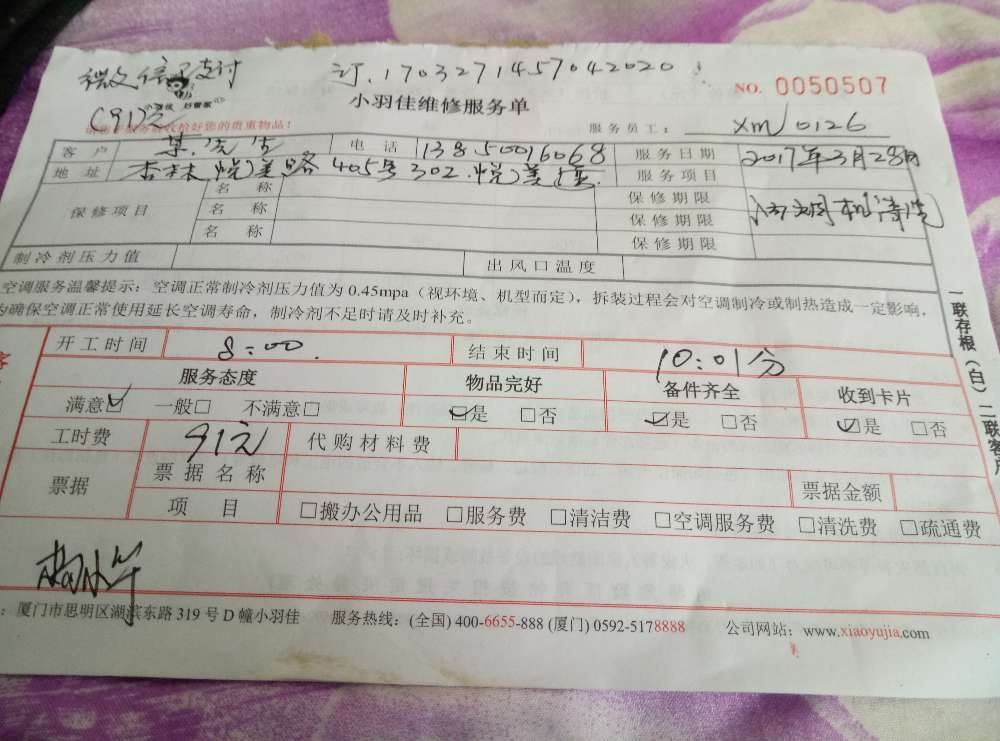 微信支付 订.1703271457042020
NO. 0050507
(91)元 小羽佳 好管家
小羽佳维修服务单
您的贵重物品！
服务员工： xm/0126
客户 先生 电话 138.50016068 服务日期 2017年3月28日
地址 杏林悦美路405号302.悦美 服务项目
保修项目 名称 保修期限 油烟机清洗
名称 保修期限
名称 保修期限
制冷剂压力值 出风口温度
空调服务温馨提示：空调正常制冷剂压力值为 0.45mpa（视环境、机型而定），拆装过程会对空调制冷或制热造成一定影响，
为确保空调正常使用延长空调寿命，制冷剂不足时请及时补充。
一联存根（白）二联客户
开工时间 8:00. 结束时间 10:01分
服务态度 物品完好 备件齐全 收到卡片
满意☑ 一般□ 不满意□ ☑是 □否 ☑是 □否 ☑是 □否
工时费 91元 代购材料费
票据 票据名称 票据金额
项目 □搬办公用品 □服务费 □清洁费 □空调服务费 □清洗费 □疏通费
：厦门市思明区湖滨东路 319 号 D 幢小羽佳 服务热线：(全国) 400-6655-888 (厦门) 0592-5178888 公司网站：www.xiaoyujia.com